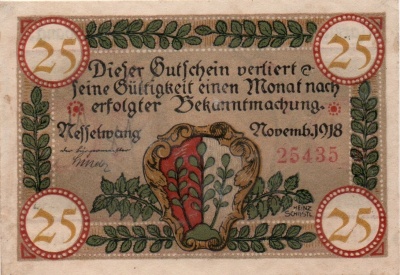 25 25
Dieser Gutschein verliert
seine Gültigkeit einen Monat nach
erfolgter Bekanntmachung.
Nesselwang Novemb. 1918
der Bürgermeister
25435
HEINZ
SCHIESTL
25 25